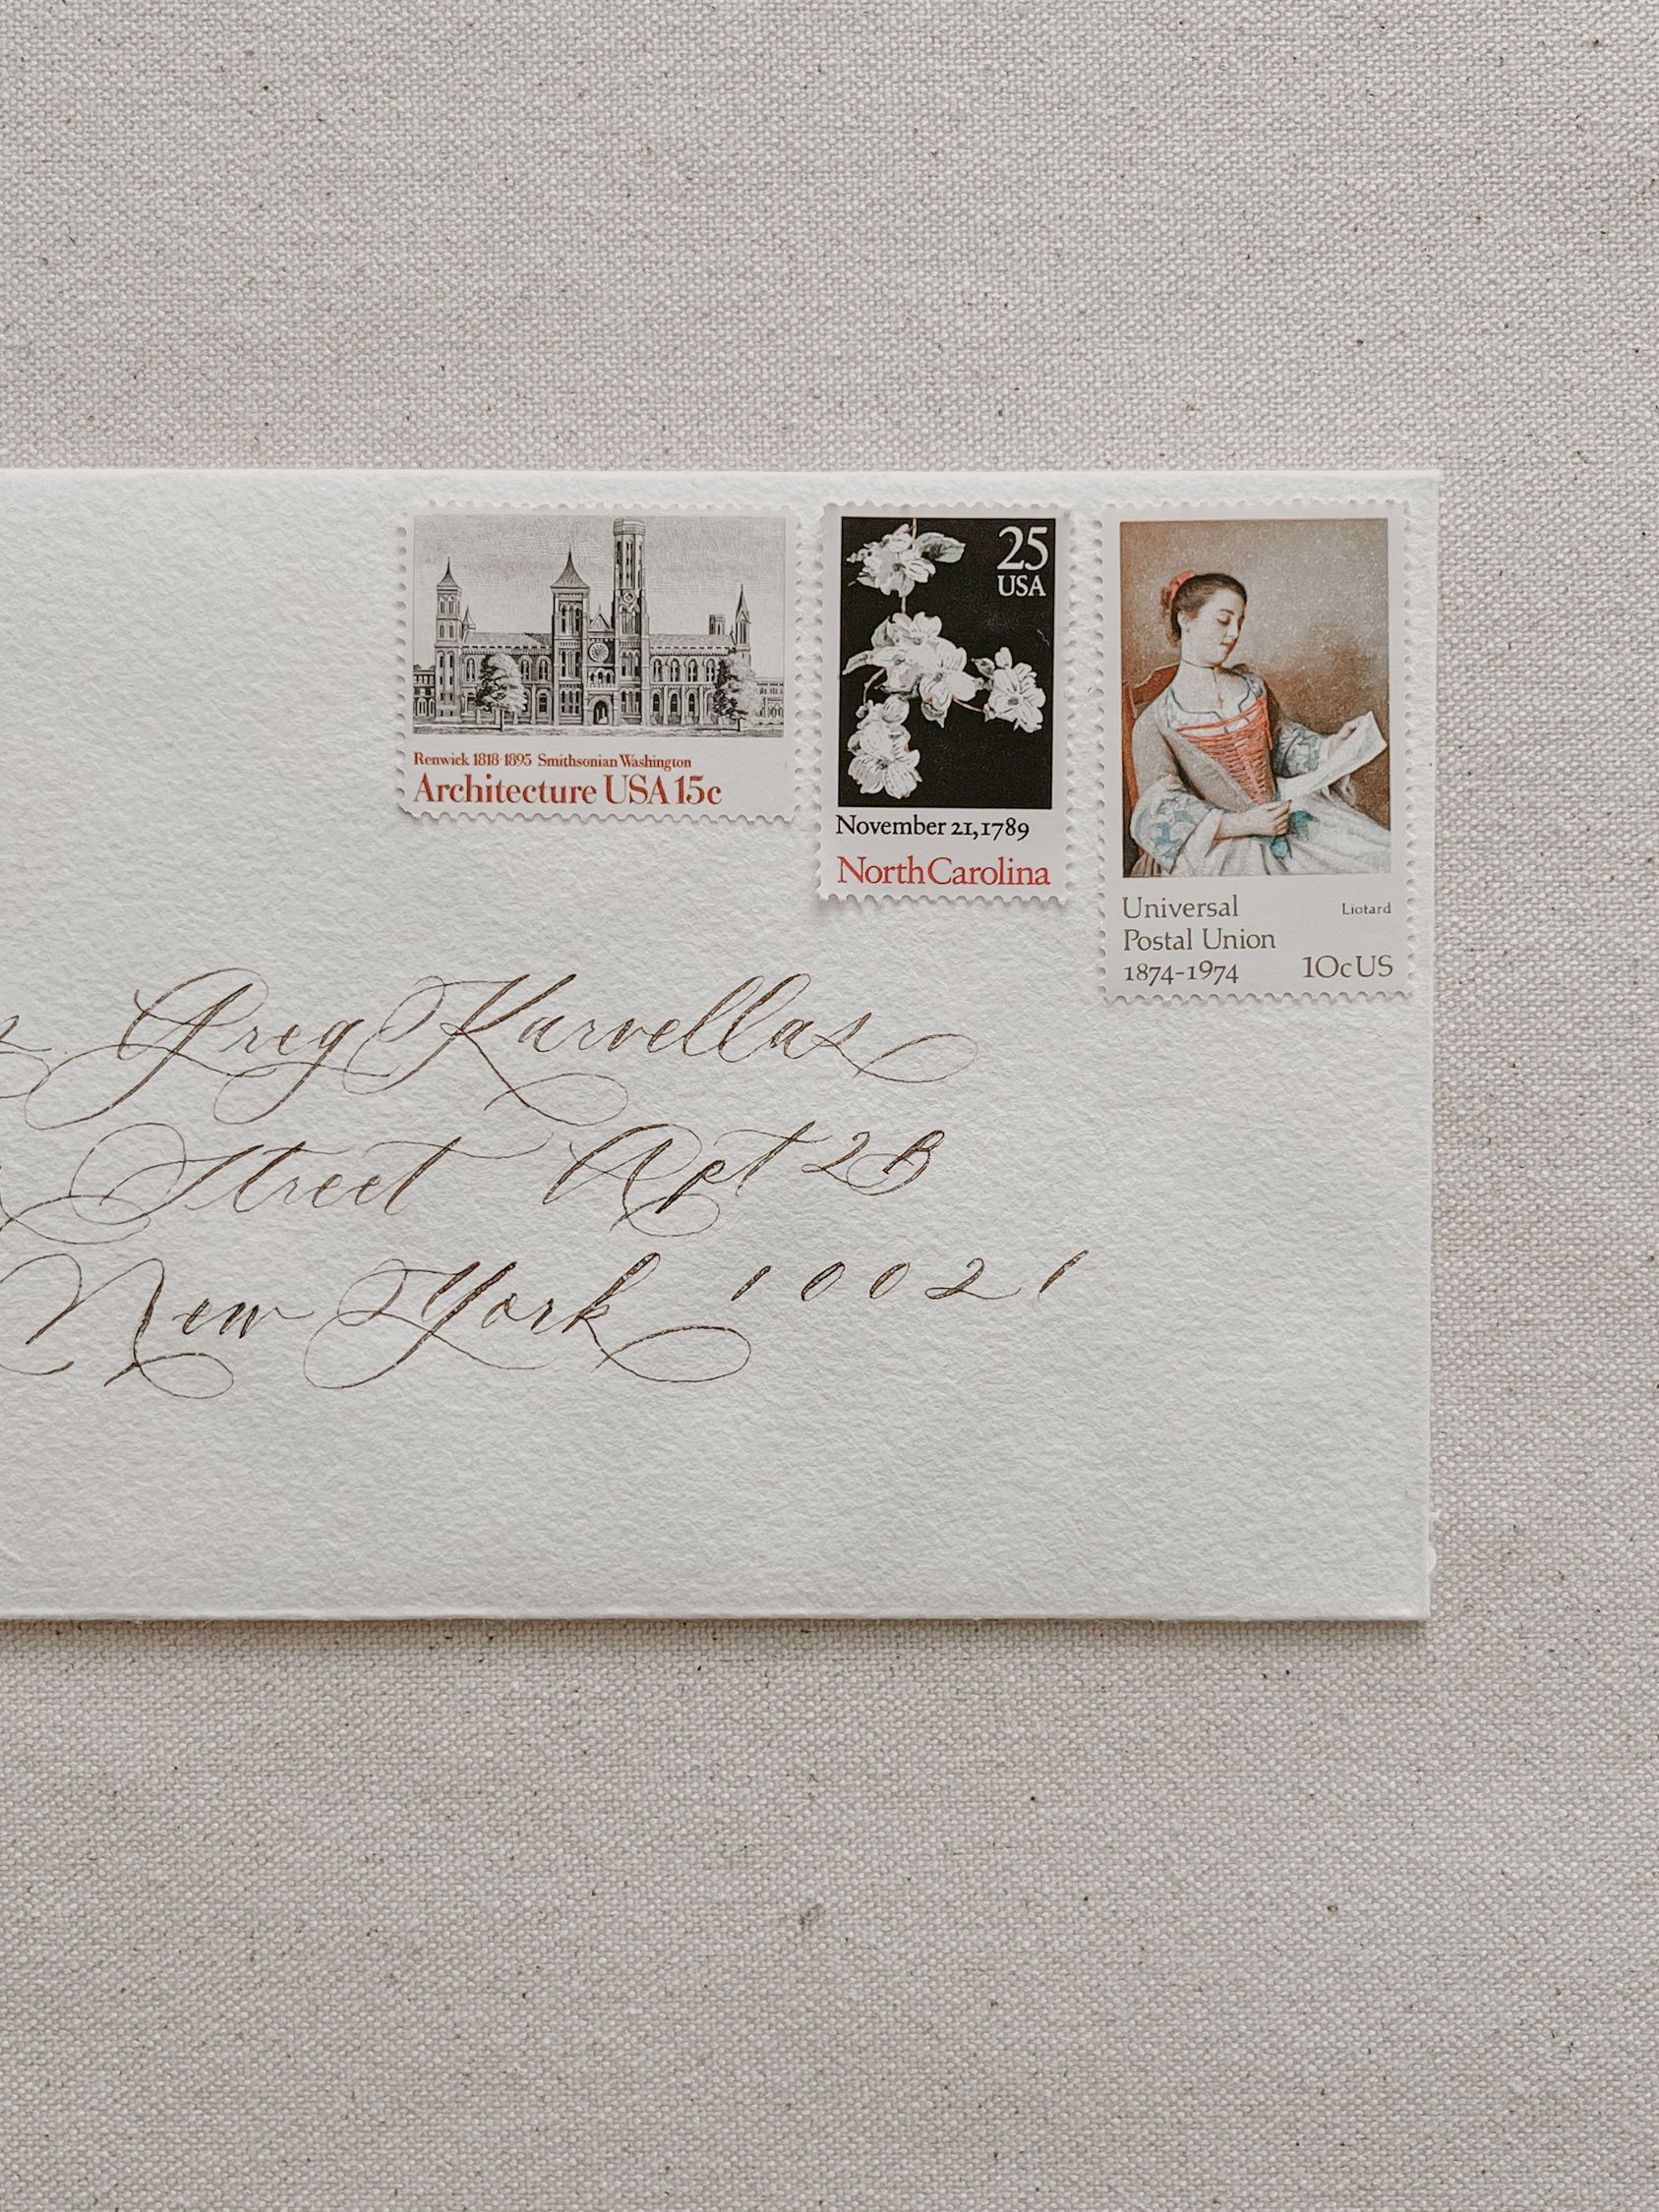 Renwick 1818-1895 Smithsonian Washington
Architecture USA 15c
25
USA
November 21, 1789
North Carolina
Universal
Postal Union
1874-1974
Liotard
10c US
Greg Karvellas
Street Apt 2B
New York 10021